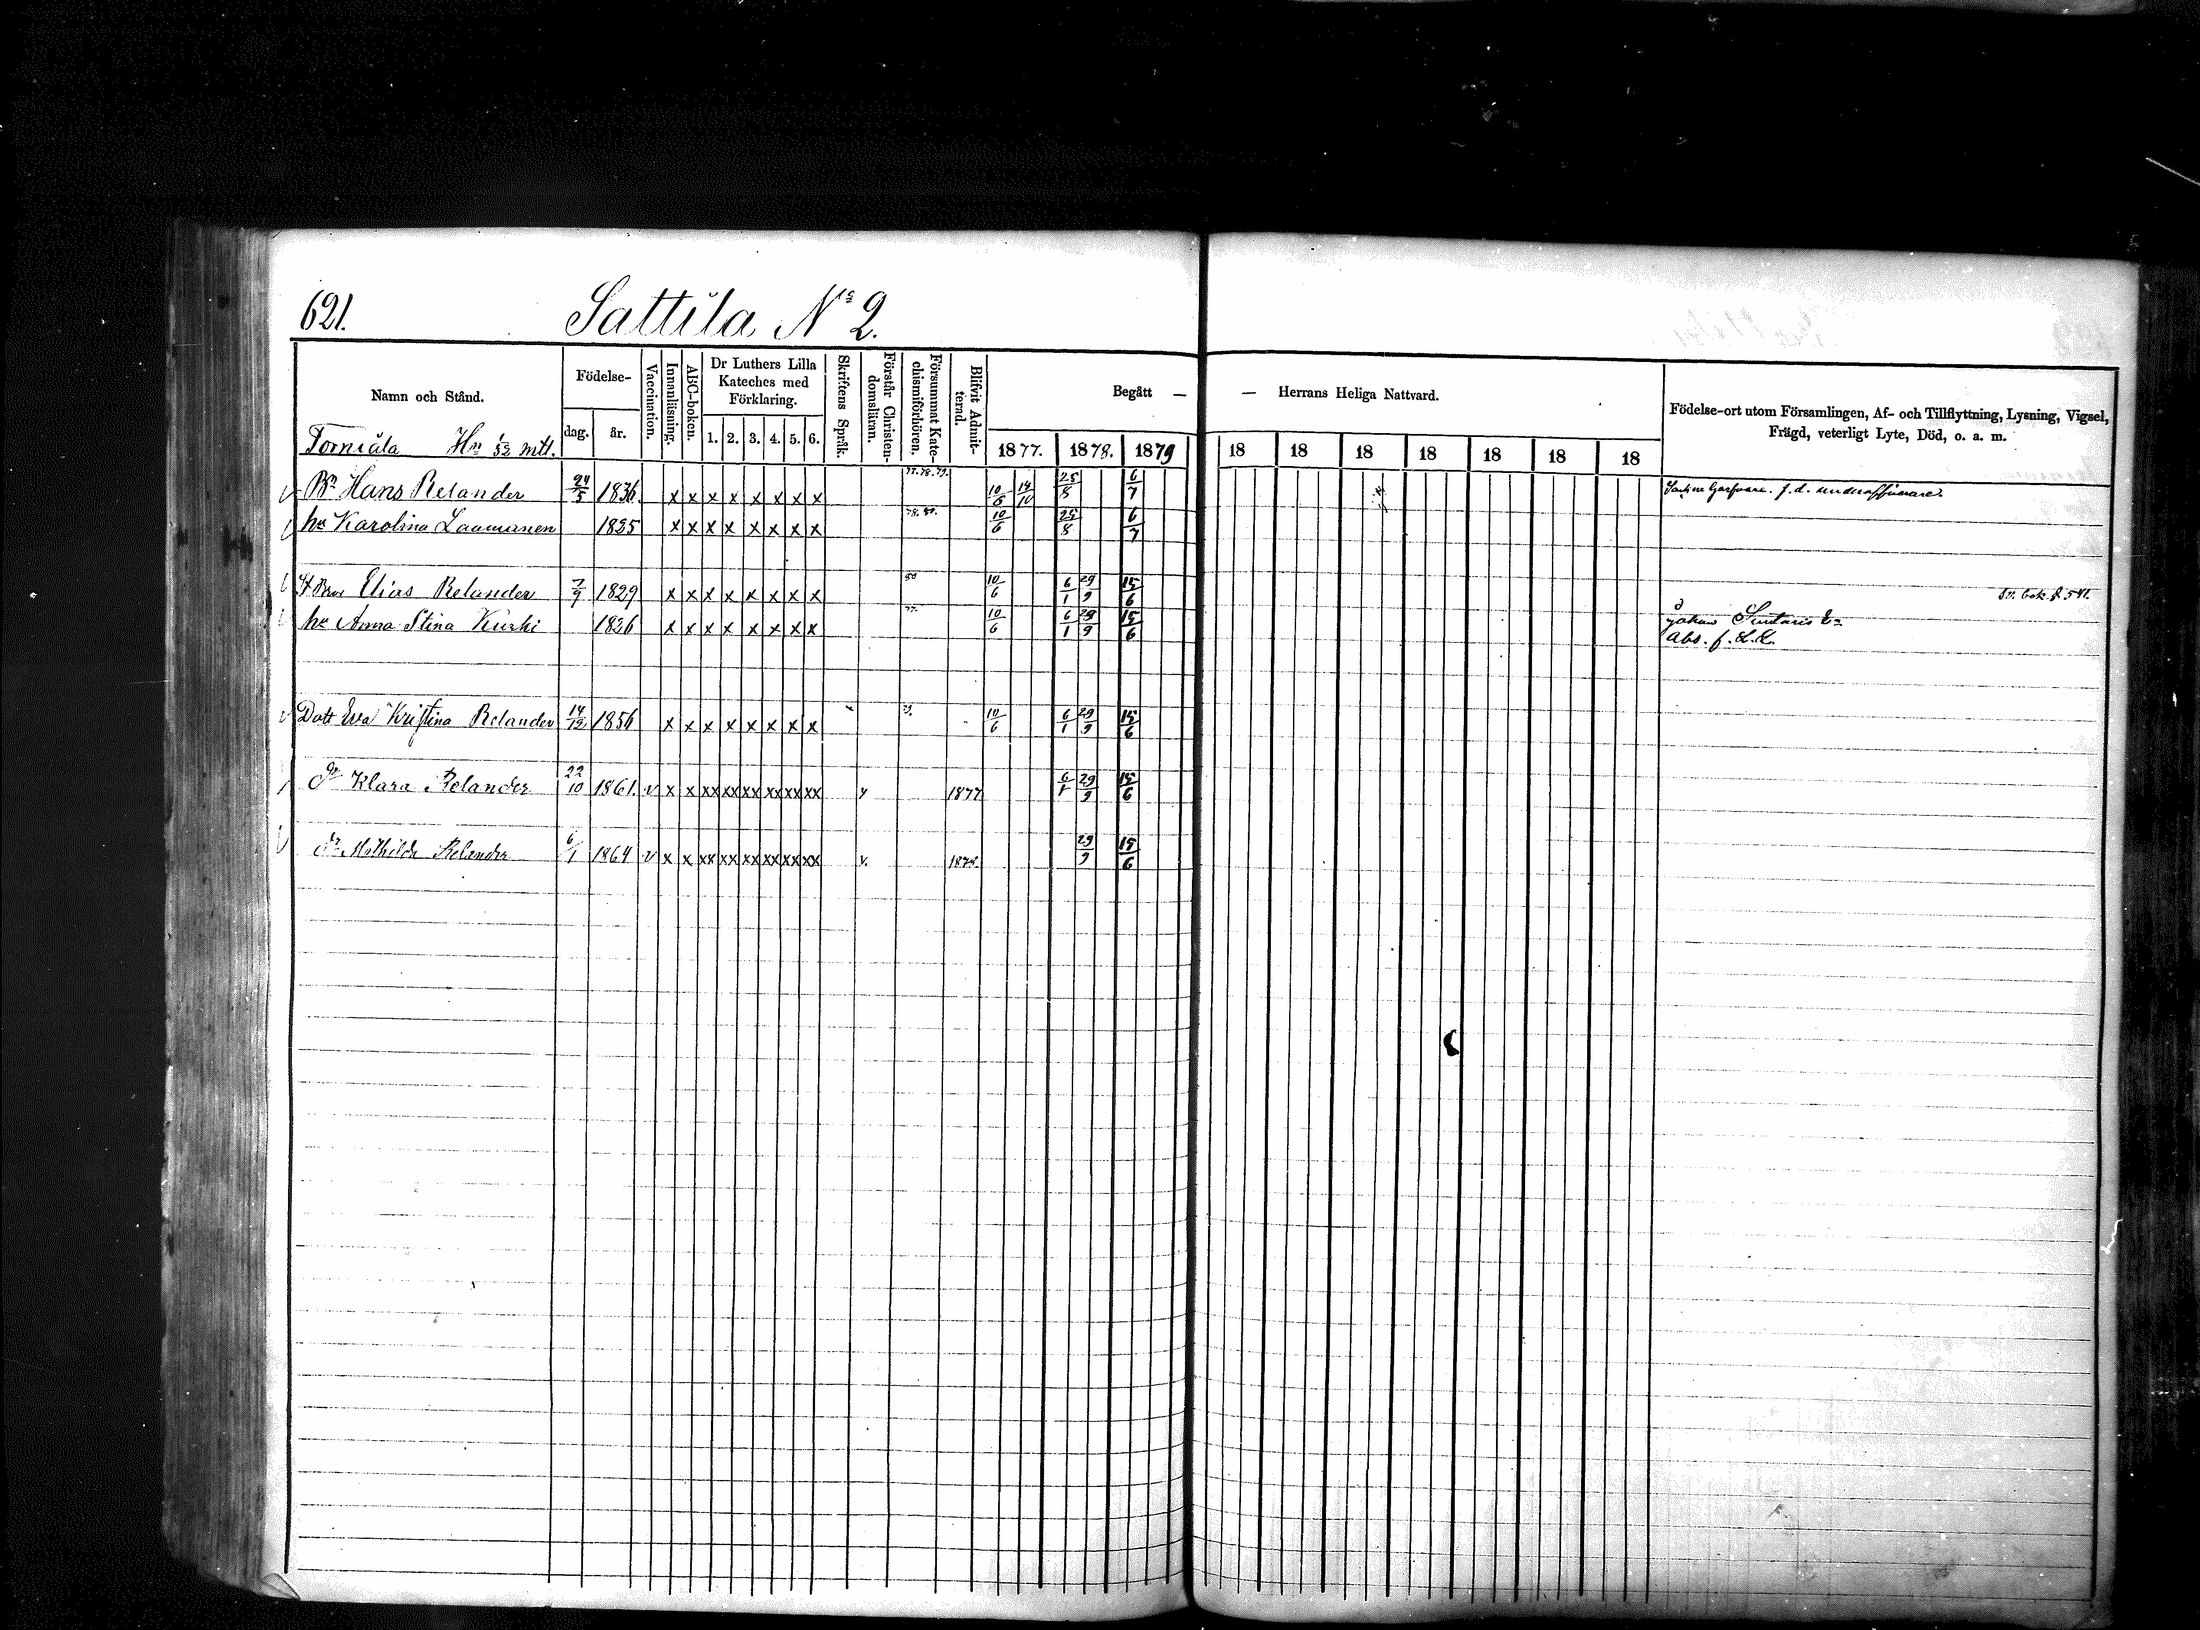 621. Sattila No 2.
Namn och Stånd. Födelse- dag. år. Vaccination. Innanläsning. ABC-boken. Dr Luthers Lilla Kateches med Förklaring. 1. 2. 3. 4. 5. 6. Skriftens Språk. Förstår Christendomsläran. Försummat Katechismiförhören. Blifvit Admitterad. Begått — — Herrans Heliga Nattvard. Födelse-ort utom Församlingen, Af- och Tillflyttning, Lysning, Vigsel, Frägd, veterligt Lyte, Död, o. a. m.
1877. 1878. 1879 18 18 18 18 18 18 18
Torniala Hn mtl.
Bn Hans Relander 24/5 1836 x x x x x x x x 77. 78. 79. 10/6 14/10 25/8 6/7 f. d.
hu Karolina Laamanen 1835 x x x x x x x x 78. 80. 10/6 25/8 6/7
Elias Relander 7/9 1829 x x x x x x x x 80 10/6 6/1 29/9 15/6
hu Anna Stina Kurki 1826 x x x x x x x x 77. 10/6 6/1 29/9 15/6
Abs. f.
Dott Eva Kristina Relander 14/12 1856 x x x x x x x x 10/6 6/1 29/9 15/6
Dr Klara Relander 22/10 1861. v x x xx xx xx xx xx xx v 1877 6/1 29/9 15/6
Dr Mathilda Relander 6/1 1864 v x x xx xx xx xx xx xx v. 1878. 29/9 15/6